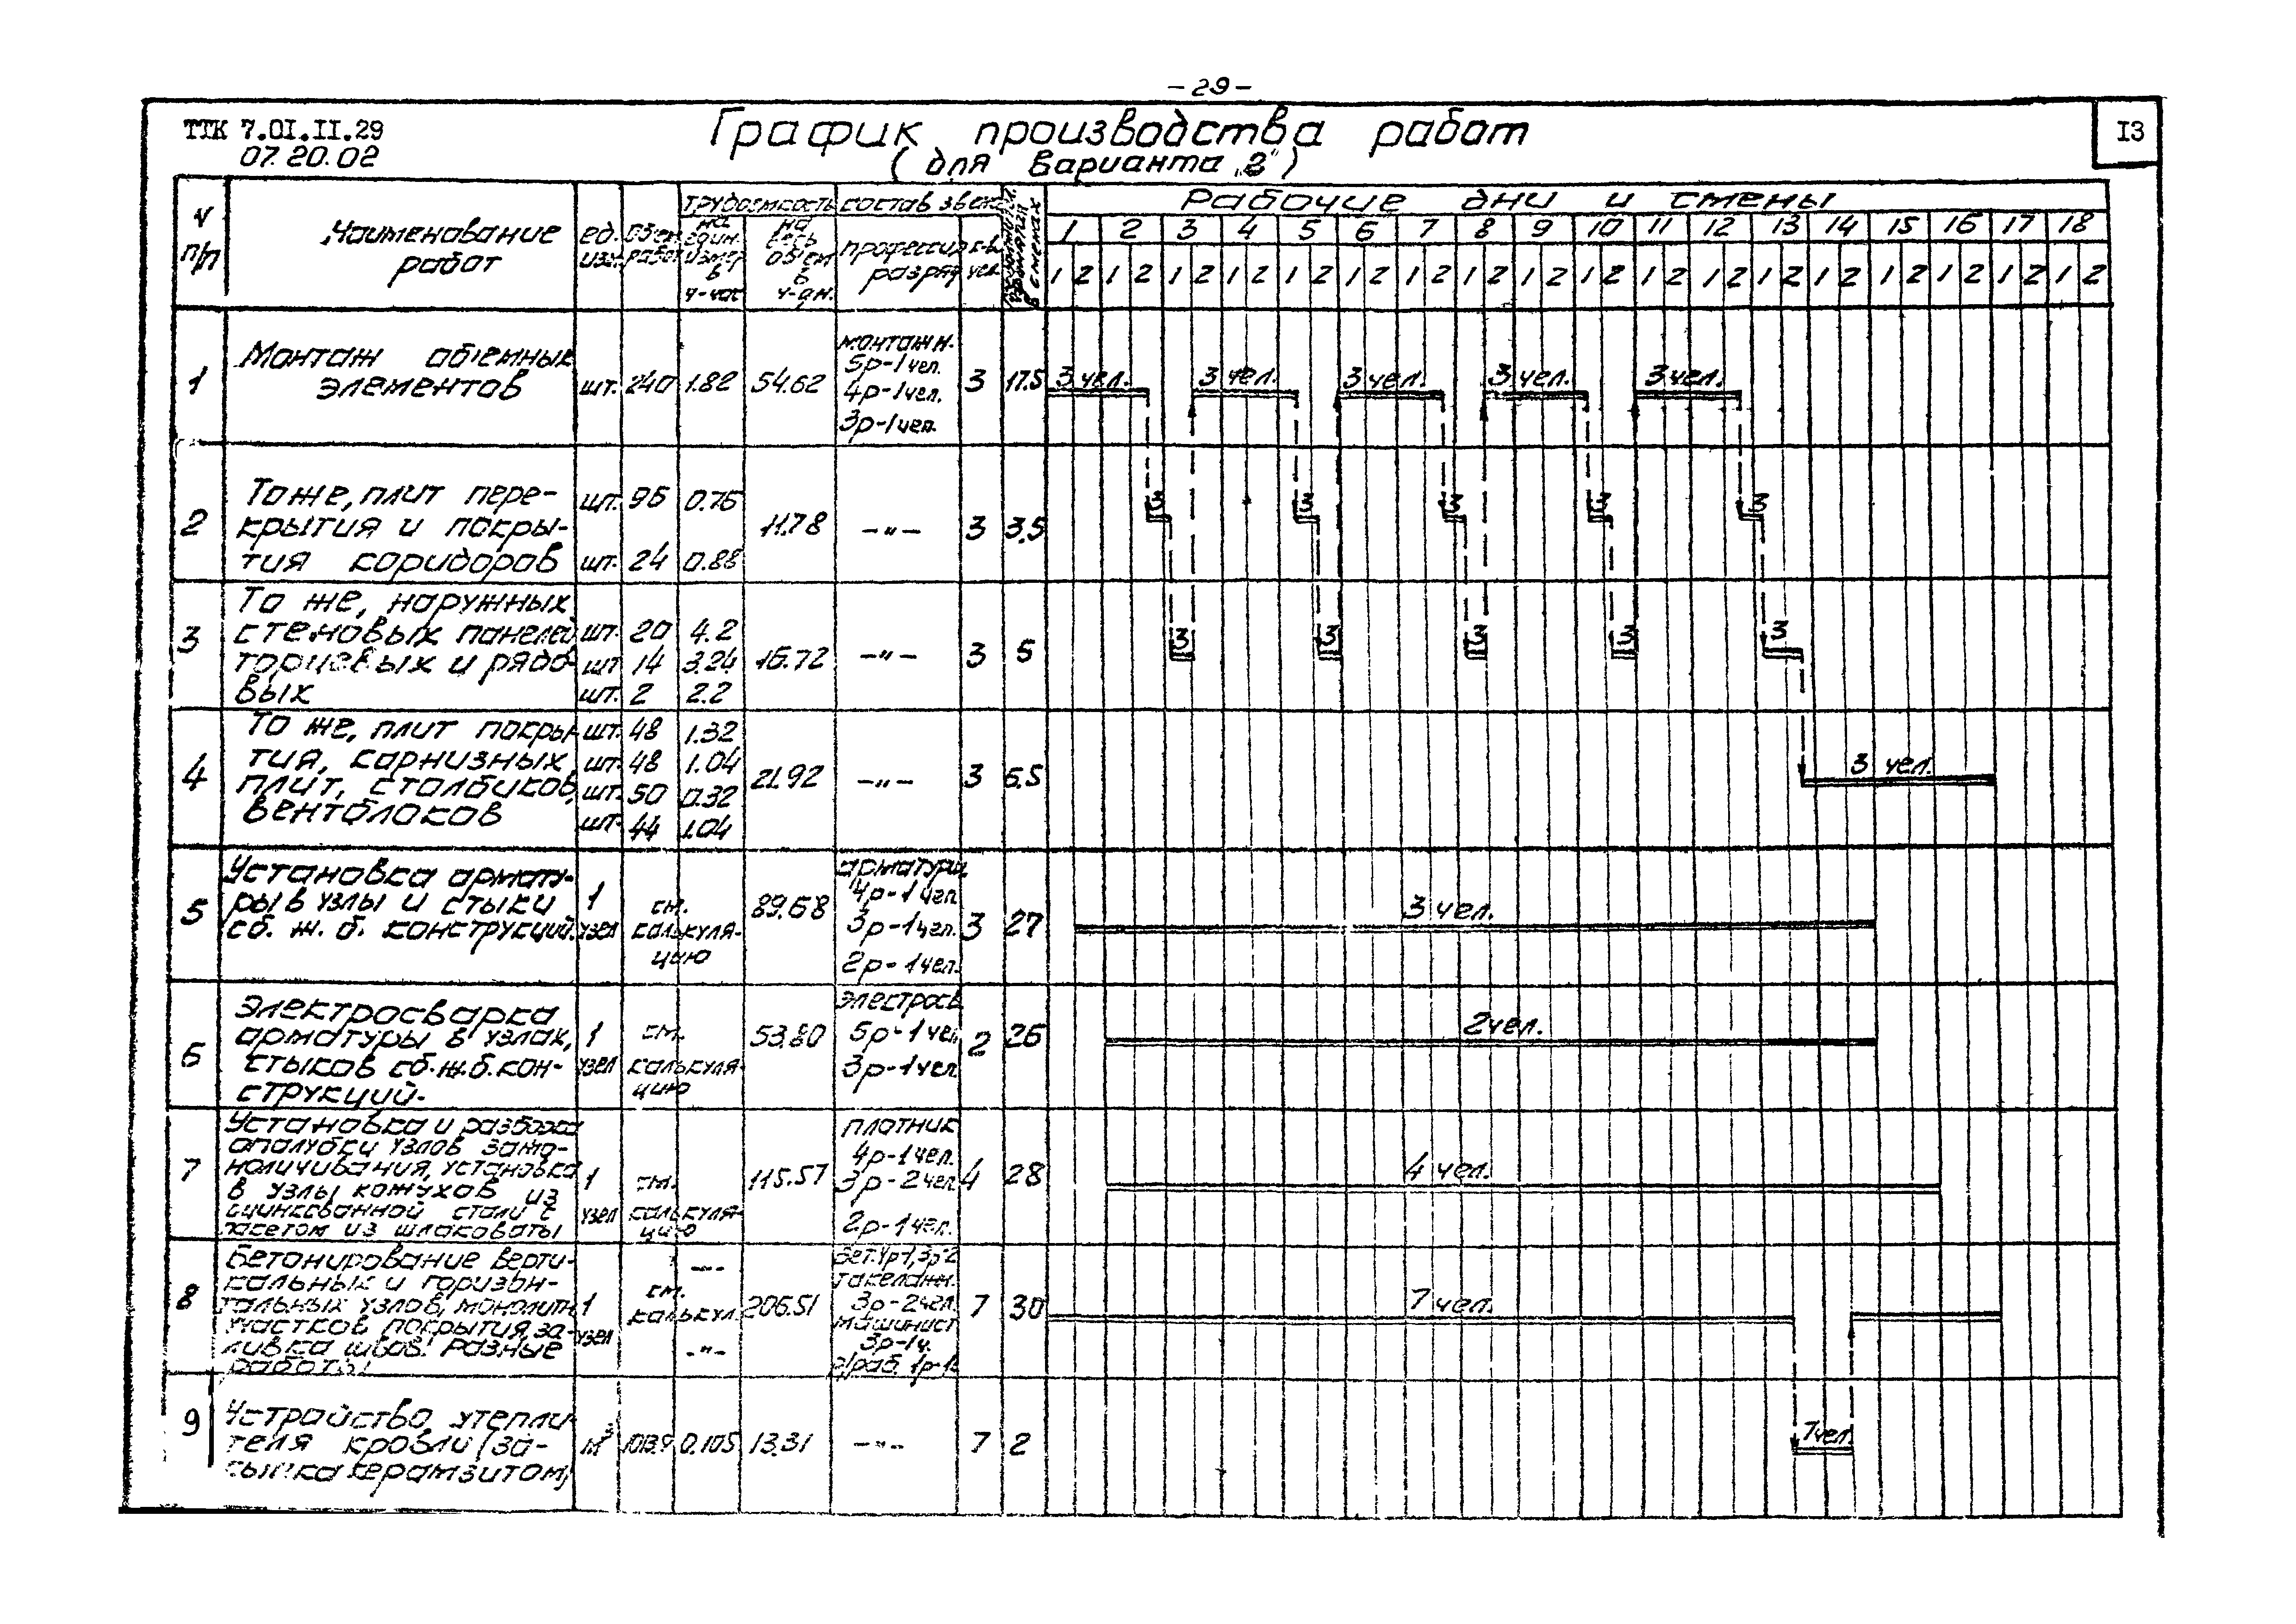 - 29 -
ТТК 7.01.II.29
07.20.02
График производства работ
(для варианта „2")
13
N п/п
Наименование работ
ед. изм.
объем работ
трудоемкость
на един. измер. в ч-час
на весь объем в ч-дн.
состав звена
профессия разряд
к-во чел.
в сменах
Рабочие дни и смены
1 2 3 4 5 6 7 8 9 10 11 12 13 14 15 16 17 18
1 2 1 2 1 2 1 2 1 2 1 2 1 2 1 2 1 2 1 2 1 2 1 2 1 2 1 2 1 2 1 2 1 2 1 2
1
Монтаж объемных
элементов
шт. 240 1.82 54.62
монтажн.
5р-1чел.
4р-1чел.
3р-1чел.
3 17.5
3 чел. 3 чел. 3 чел. 3 чел. 3 чел.
2
То же, плит пере-
крытия и покры-
тия коридоров
шт. 96 0.76
шт. 24 0.88
11.78 -"- 3 3.5
3 3 3 3 3
3
То же, наружных
стеновых панелей
торцевых и рядо-
вых
шт. 20 4.2
шт 14 3.24
шт. 2 2.2
16.72 -"- 3 5
3 3 3 3 3
4
То же, плит покры
тия, карнизных
плит, столбиков,
вентблоков
шт. 48 1.32
шт. 48 1.04
шт. 50 0.32
шт. 44 1.04
21.92 -"- 3 6.5
3 чел.
5
Установка армату-
ры в узлы и стыки
сб. ж. б. конструкций.
1 узел
см.
калькуля-
цию
89.68
арматурщ.
4р-1чел
3р-1чел.
2р-1чел.
3 27
3 чел.
6
Электросварка
арматуры в узлах,
стыков сб.ж.б.кон-
струкций.
1 узел
см.
калькуля-
цию
53.80
элестросв.
5р-1чел
3р-1чел
2 26
2чел.
7
Установка и разборка
опалубки узлов замо-
ноличивания, установка
в узлы кожухов из
оцинкованной стали с
пакетом из шлаковаты
1 узел
см.
калькуля-
цию
115.57
плотник
4р-1чел.
3р-2чел
2р-1чел.
4 28
4 чел.
8
Бетонирование верти-
кальных и горизон-
тальных узлов, монолитн.
участков покрытия, за-
ливка швов. Разные
работы
1 узел
-"-
см.
калькул.
-"-
206.51
Бет.4р-1, 3р-2
такелажн.
3р-2чел.
машинист
3р-1ч.
7 30
7 чел.
9
Устройство утепли-
теля кровли (за-
сыпка керамзитом)
м³ 1013.9 0.105 13.31 -"- 7 2
7чел.